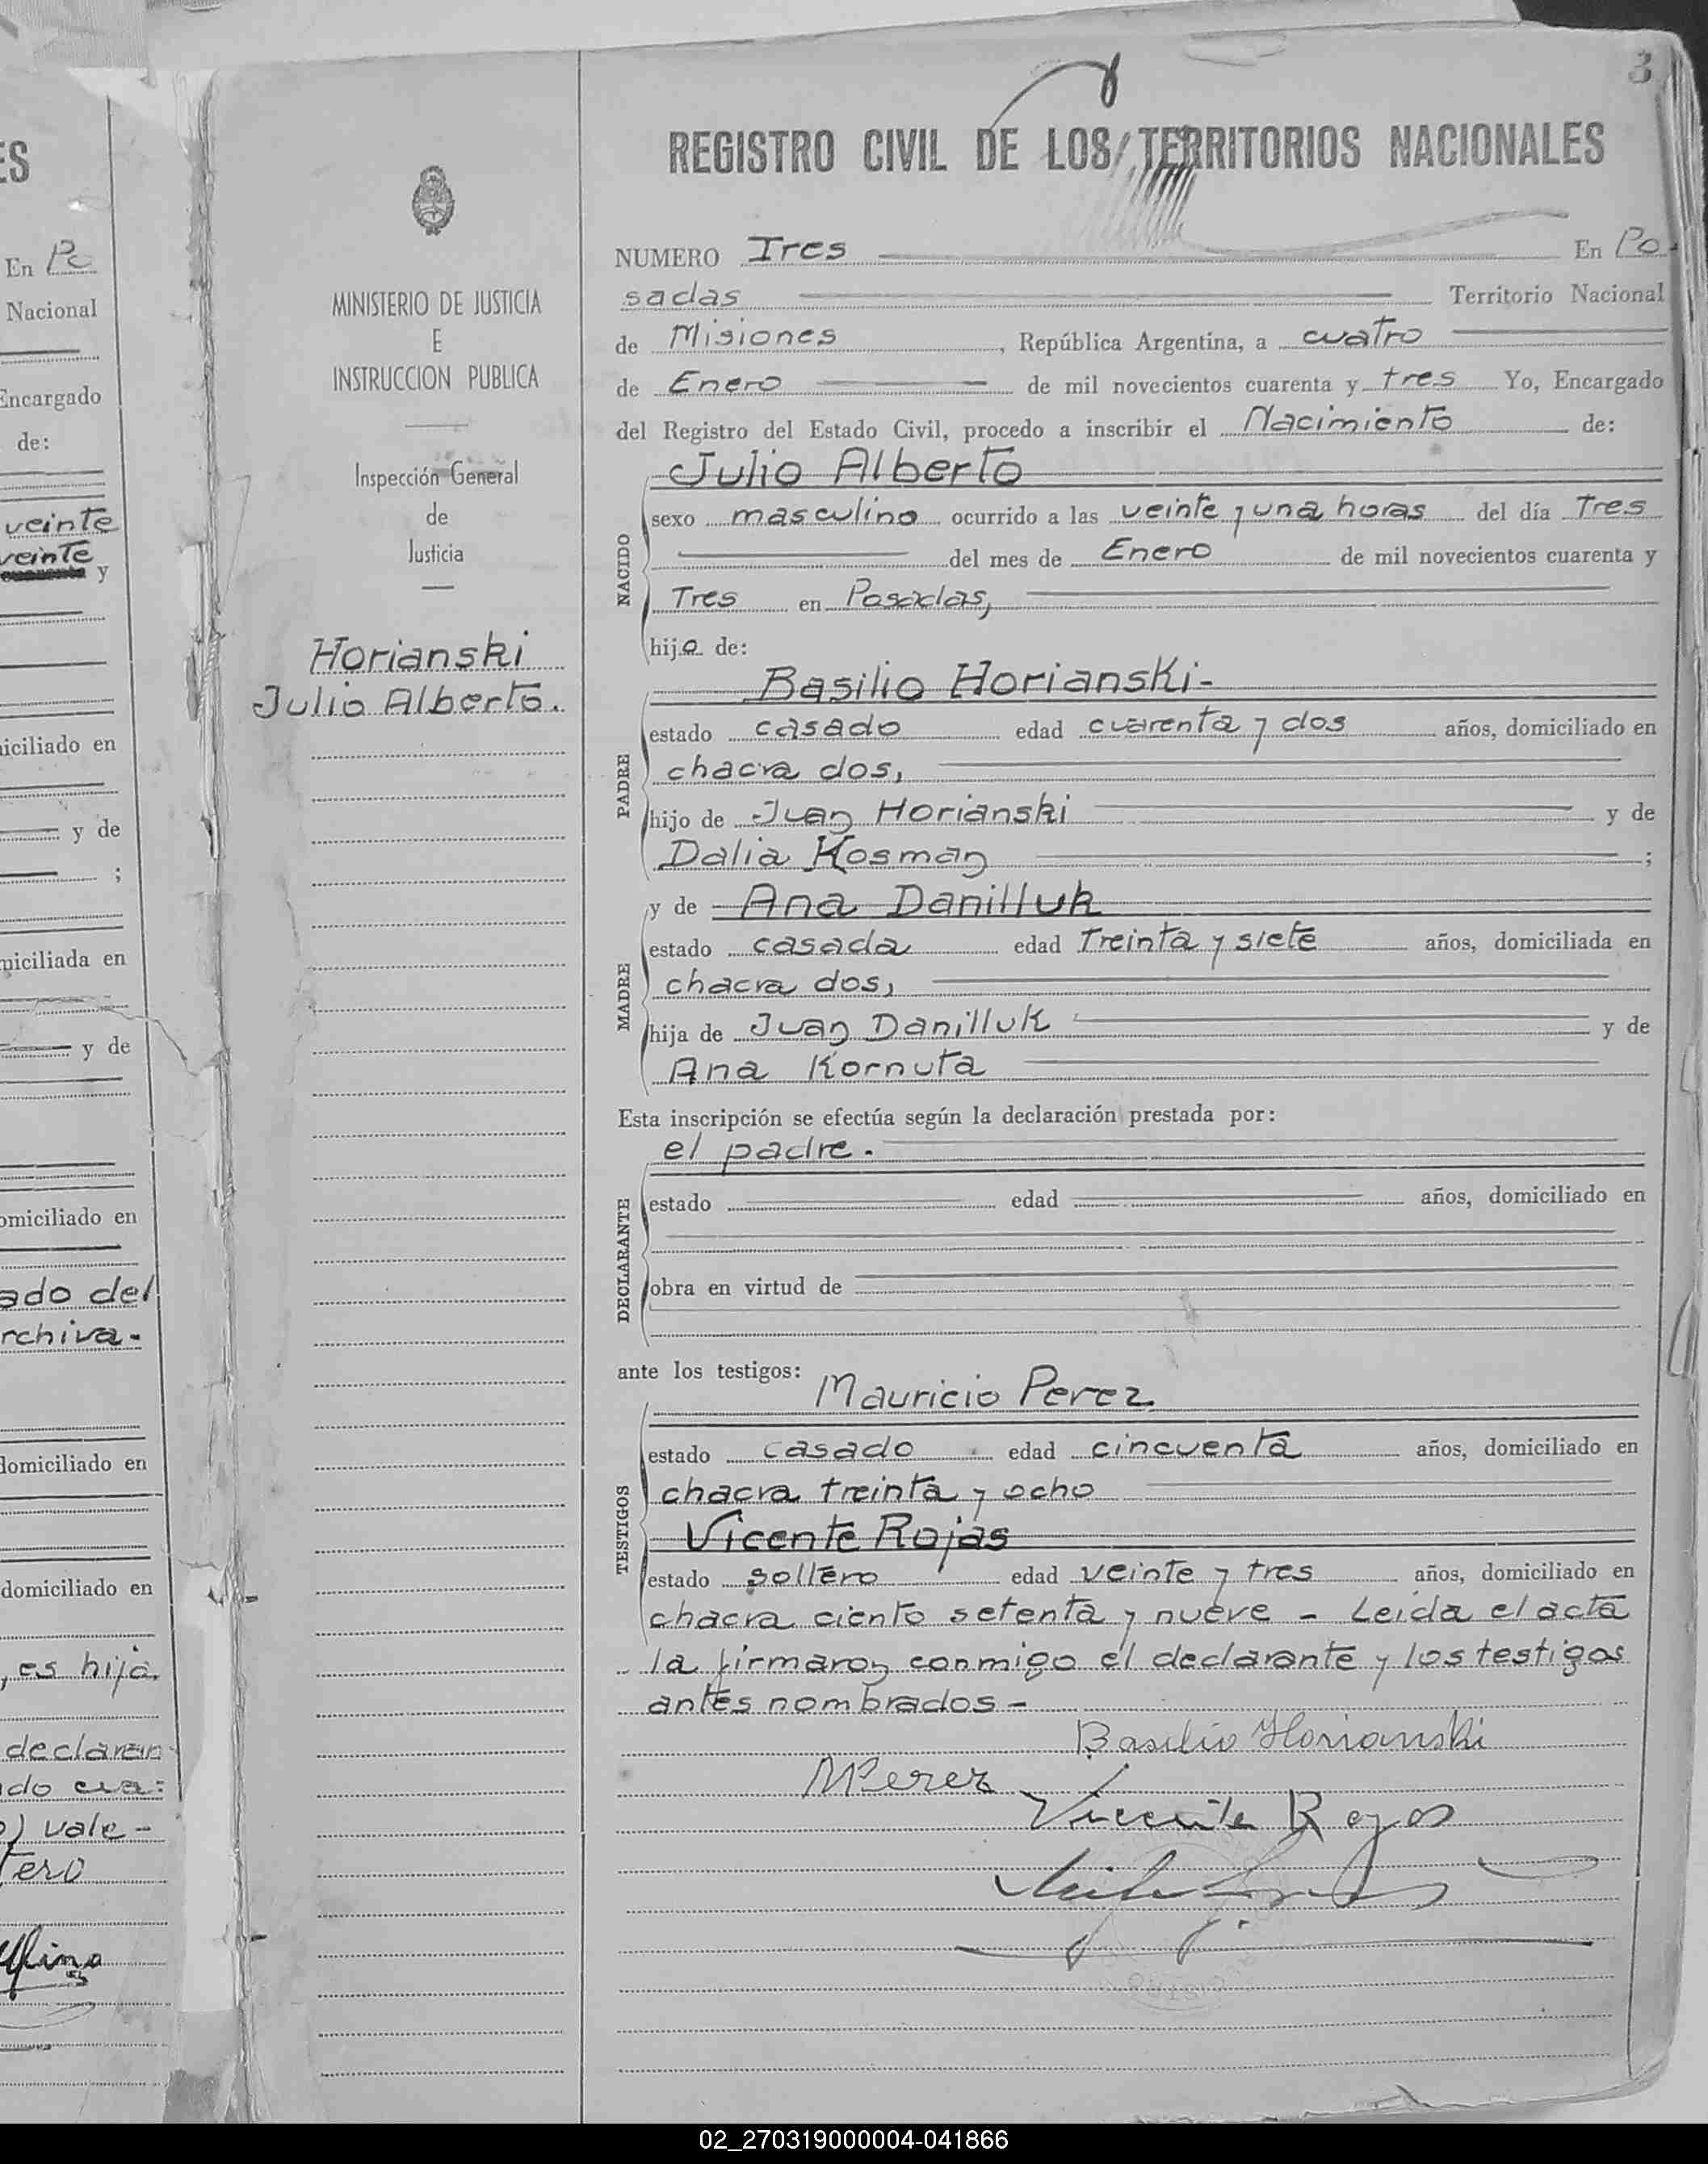 ES
En Po
Nacional
Encargado
de:
veinte
veinte
y
miciliado en
y de
;
miciliada en
y de
omiciliado en
ado del
rchiva-
domiciliado en
domiciliado en
, es hija.
declaran
do
) vale-
tero
MINISTERIO DE JUSTICIA
E
INSTRUCCION PUBLICA
Inspección General
de
Justicia
Horianski
Julio Alberto.
3
REGISTRO CIVIL DE LOS TERRITORIOS NACIONALES
NUMERO Tres En Po-
sadas Territorio Nacional
de Misiones, República Argentina, a cuatro
de Enero de mil novecientos cuarenta y tres Yo, Encargado
del Registro del Estado Civil, procedo a inscribir el Nacimiento de:
Julio Alberto
NACIDO
sexo masculino ocurrido a las veinte y una horas del día Tres
del mes de Enero de mil novecientos cuarenta y
Tres en Posadas,
hijo de:
Basilio Horianski-
PADRE
estado casado edad cuarenta y dos años, domiciliado en
chacra dos,
hijo de Juan Horianski y de
Dalia Kosman ;
y de Ana Danilluk
MADRE
estado casada edad Treinta y siete años, domiciliada en
chacra dos,
hija de Juan Danilluk y de
Ana Kornuta
Esta inscripción se efectúa según la declaración prestada por:
el padre.
DECLARANTE
estado edad años, domiciliado en
obra en virtud de
ante los testigos:
Mauricio Perez
TESTIGOS
estado casado edad cincuenta años, domiciliado en
chacra treinta y ocho
Vicente Rojas
estado soltero edad veinte y tres años, domiciliado en
chacra ciento setenta y nueve - Leida el acta
la firmaron conmigo el declarante y los testigos
antes nombrados-
Basilio Horianski
MPerez
Vicente Rojas
02_270319000004-041866